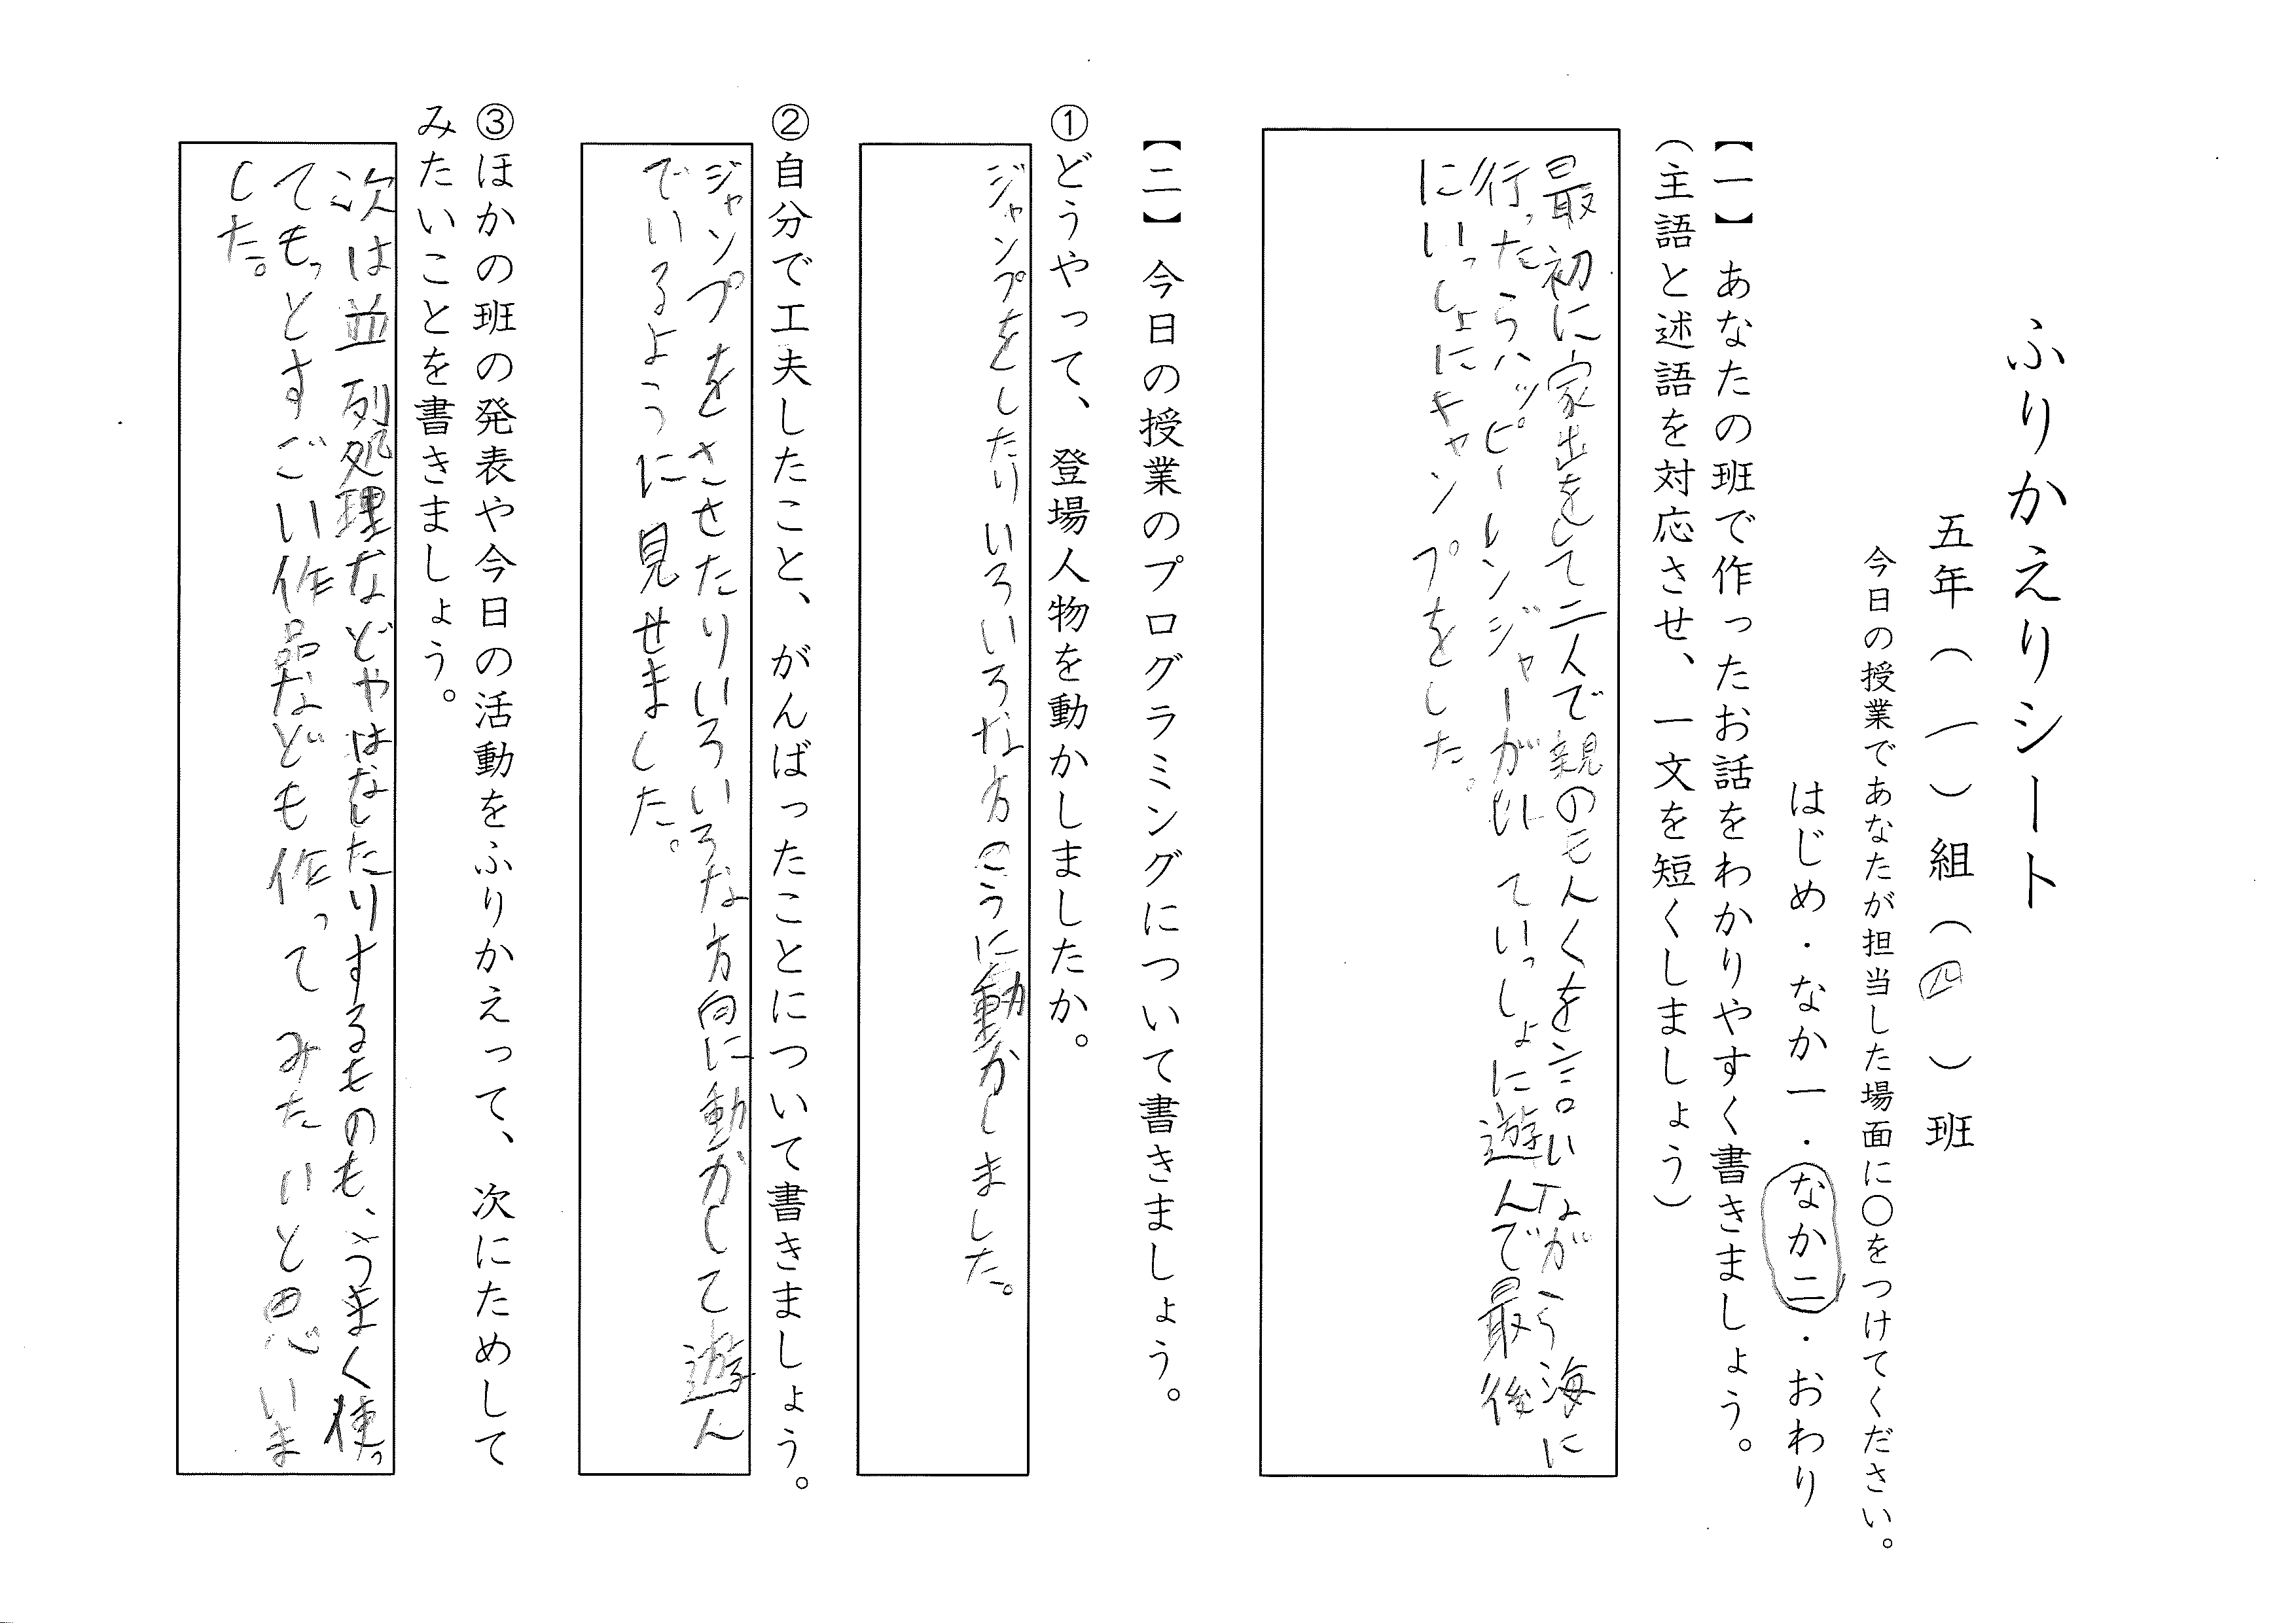 ふりかえりシート
五年（一）組（四）班
今日の授業であなたが担当した場面に○をつけてください。
はじめ・なか一・なか二・おわり
【一】あなたの班で作ったお話をわかりやすく書きましょう。
（主語と述語を対応させ、一文を短くしましょう）
最初に家出をして二人で親のもんくを言いながら海に
行ったらハッピーレンジャーが いていっしょに遊んで最後
にいっしょにキャンプをした。
【二】今日の授業のプログラミングについて書きましょう。
①どうやって、登場人物を動かしましたか。
ジャンプをしたりいろいろな方こうに動かしました。
②自分で工夫したこと、がんばったことについて書きましょう。
ジャンプをさせたりいろいろな方向に動かして遊ん
でいるように見せました。
③ほかの班の発表や今日の活動をふりかえって、次にためして
みたいことを書きましょう。
次は並列処理などやはなしたりするものも、うまく使っ
てもっとすごい作品なども作ってみたいと思いま
した。